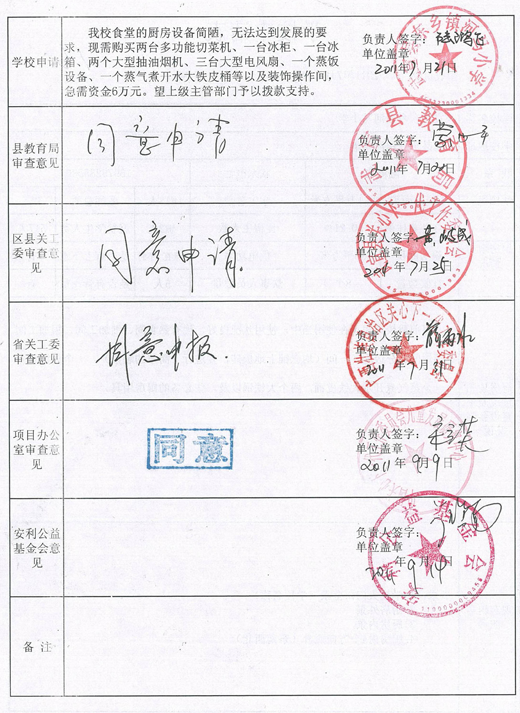 学校申请
我校食堂的厨房设备简陋，无法达到发展的要
求，现需购买两台多功能切菜机、一台冰柜、一台冰
箱、两个大型抽油烟机、三台大型电风扇、一个蒸饭
设备、一个蒸气煮开水大铁皮桶等以及装饰操作间，
急需资金6万元。望上级主管部门予以拨款支持。
负责人签字：
单位盖章
2011年7月21日
县教育局
审查意见
同意申请
负责人签字：
单位盖章
2011年7月22日
区县关工
委审查意
见
同意申请
负责人签字：
单位盖章
2011年7月25日
省关工委
审查意见
同意申报
负责人签字：
单位盖章
2011年7月31日
项目办公
室审查意
见
同意
负责人签字：
单位盖章
2011年9月9日
安利公益
基金会意
见
公益基金会
负责人签字：
单位盖章
年9月14日
备 注